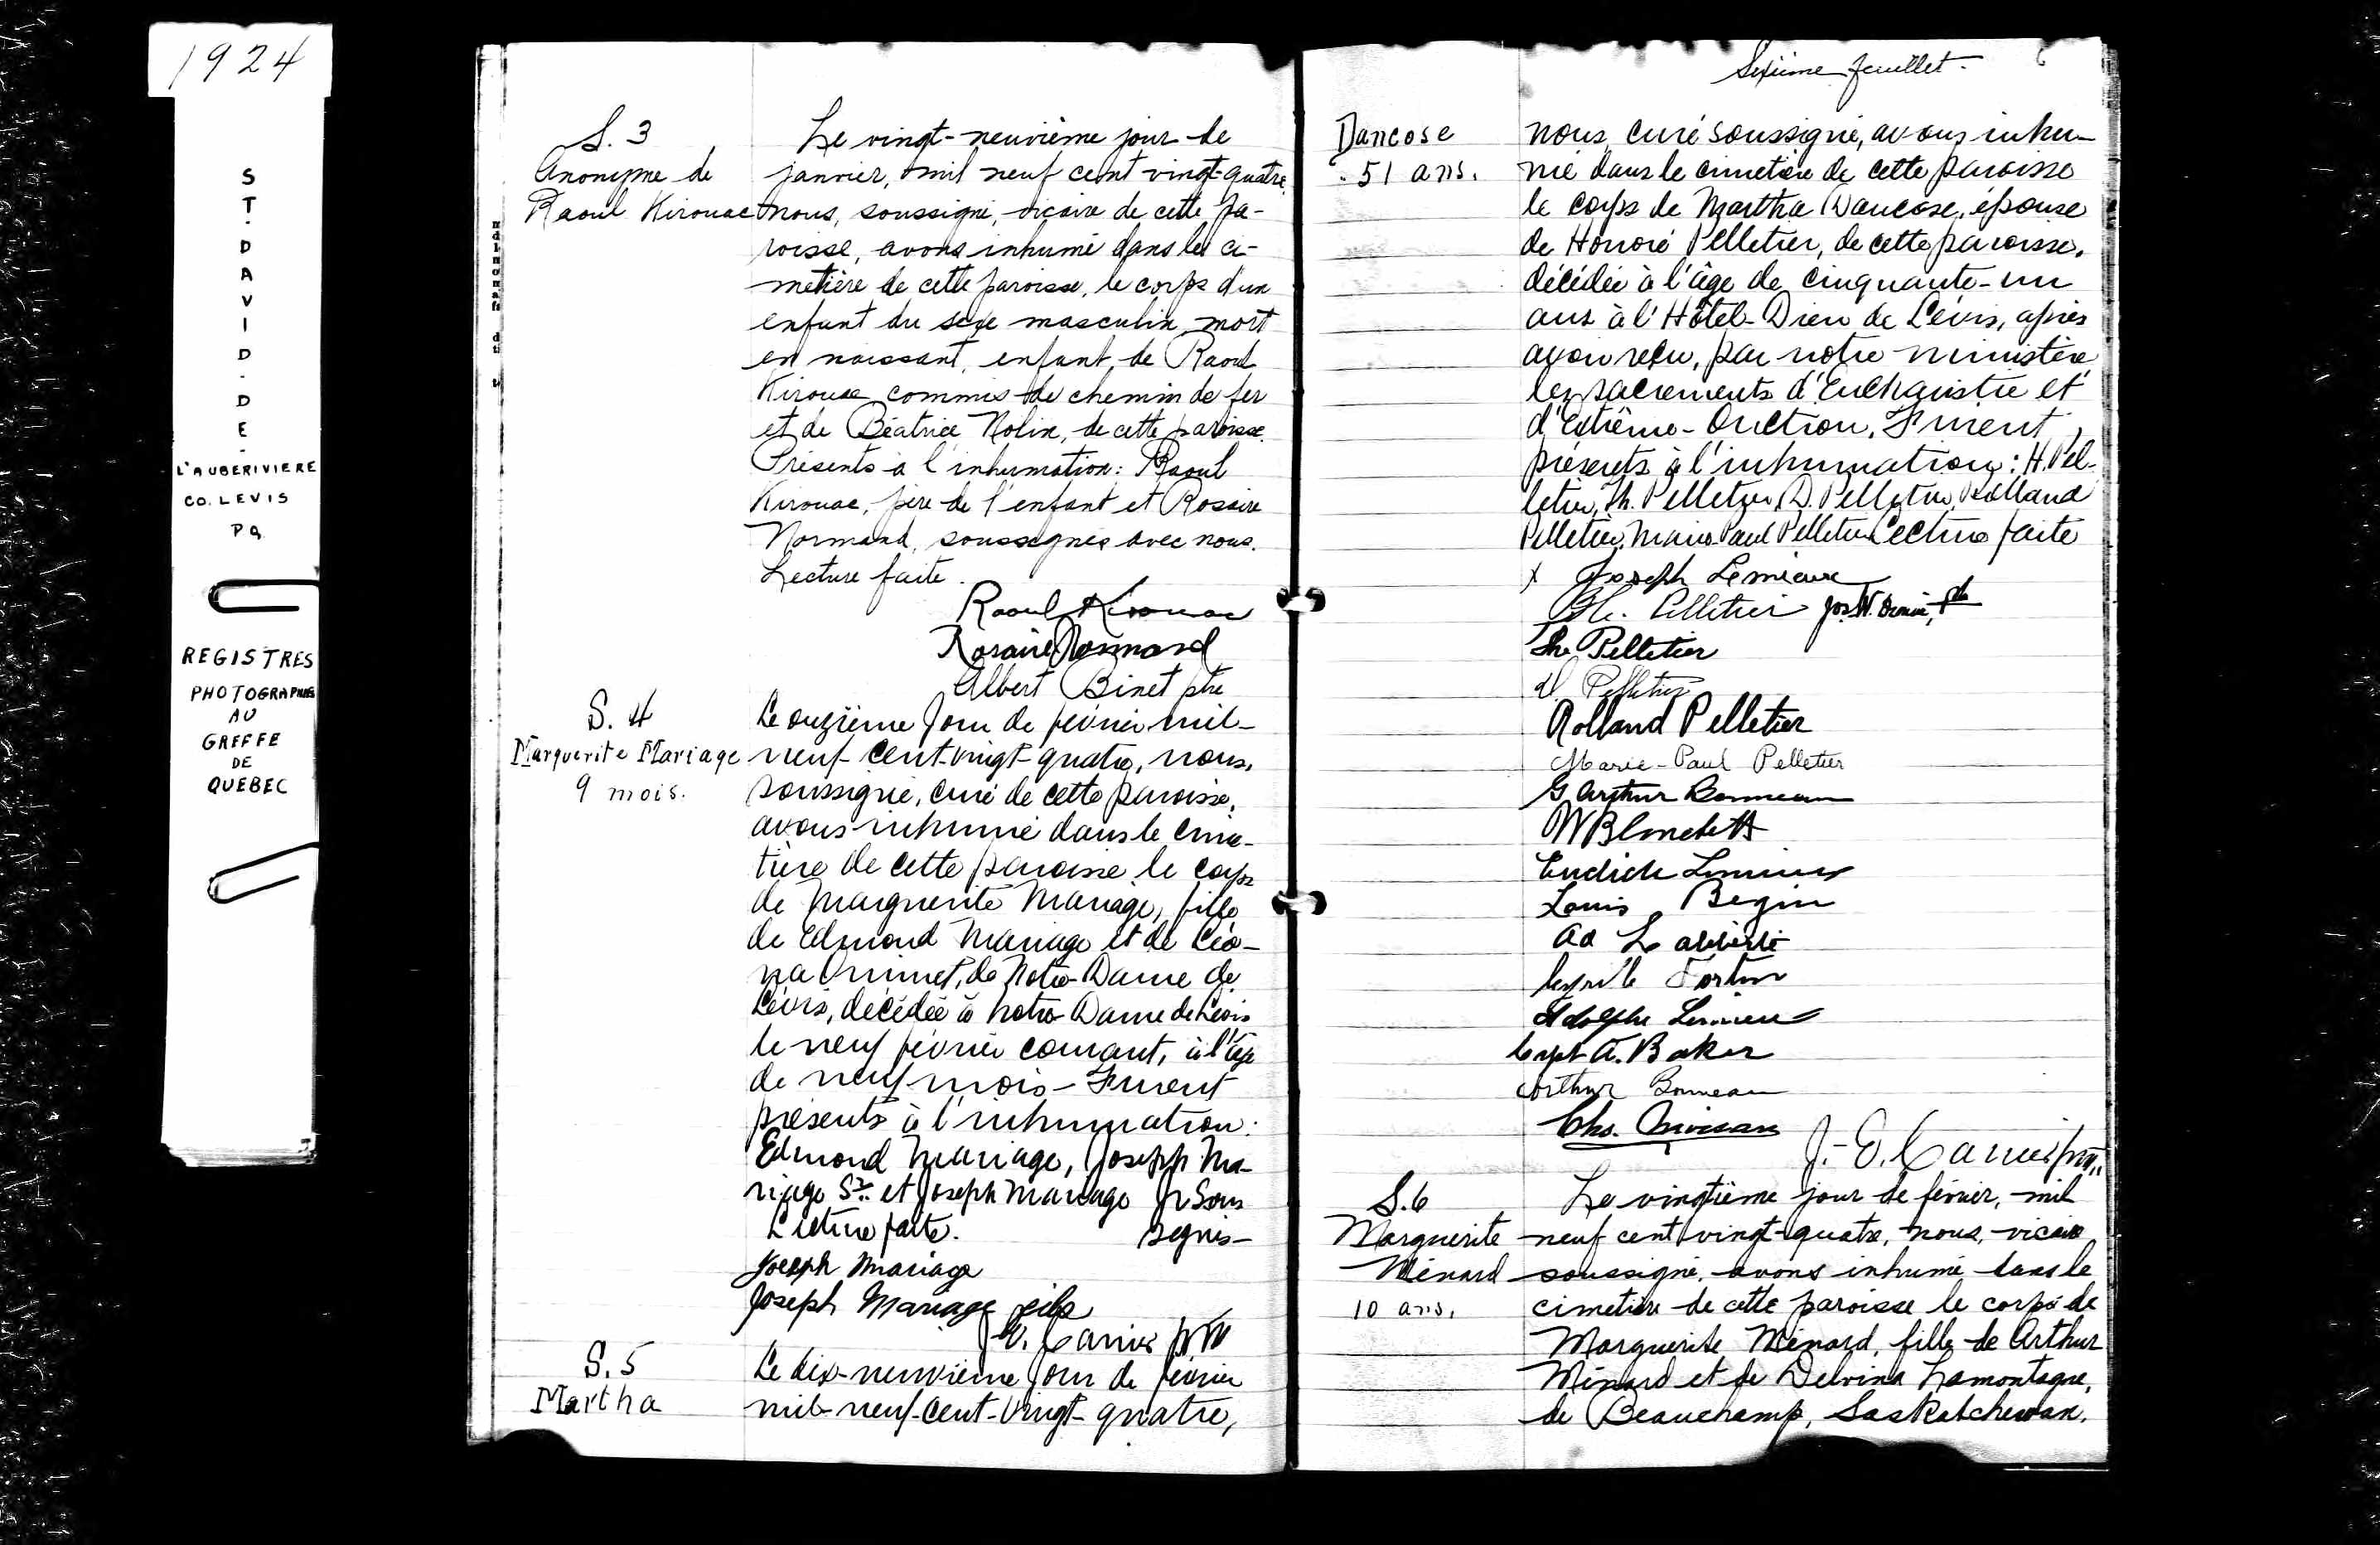 1924
ST. DAVID-DE-
L'AUBERIVIERE
CO. LEVIS
PQ
REGISTRES
PHOTOGRAPHIES
AU
GREFFE
DE
QUEBEC
S. 3
Anonyme de
Raoul Kirouac
Le vingt-neuvième jour de
janvier, mil neuf cent vingt-quatre
nous, soussigné, vicaire de cette pa-
roisse, avons inhumé dans le ci-
metière de cette paroisse, le corps d'un
enfant du sexe masculin mort
en naissant, enfant de Raoul
Kirouac commis de chemin de fer
et de Béatrice Nolin, de cette paroisse.
Présents à l'inhumation: Raoul
Kirouac, père de l'enfant et Rosaire
Normand, soussignés avec nous.
Lecture faite.
Raoul Kirouac
Rosaire Normand
Albert Binet ptre
S. 4
Marguerite Mariage
9 mois.
Le onzième jour de février mil-
neuf-cent-vingt-quatre, nous,
soussigné, curé de cette paroisse,
avons inhumé dans le cime-
tière de cette paroisse le corps
de Marguerite Mariage, fille
de Edmond Mariage et de Léo-
na Ouimet, de Notre-Dame de
Lévis, décédée à Notre-Dame de Lévis
le neuf février courant, à l'âge
de neuf mois - Furent
présents à l'inhumation:
Edmond Mariage, Joseph Ma-
riage Sr. et Joseph Mariage Jr Sous
Lecture faite. signés-
Joseph Mariage
Joseph Mariage fils
J. E. Carrier ptre
S. 5
Martha
Le dix-neuvième jour de février
mil-neuf-cent-vingt-quatre,
Sixième feuillet. 6
Dancose
51 ans.
nous, curé soussigné, avons inhu-
mé dans le cimetière de cette paroisse
le corps de Martha Dancose, épouse
de Honoré Pelletier, de cette paroisse,
décédée à l'âge de cinquante-un
ans à l'Hôtel-Dieu de Lévis, après
avoir reçu, par notre ministère
les sacrements d'Eucharistie et
d'Extrême-Onction. Furent
présents à l'inhumation: H. Pel-
letier, Th. Pelletier, D. Pelletier, Rolland
Pelletier, Marie-Paul Pelletier Lecture faite
x Joseph Lemieux
H. Pelletier
Th. Pelletier
D. Pelletier
Rolland Pelletier
Marie-Paul Pelletier
G Arthur Bonneau
W Blanchett
Euclide Lemieux
Louis Begin
Ad Laliberté
Cyrille Fortin
Adolphe Lemieux
Capt A. Baker
Arthur Bonneau
Chs. Moisan
J.-E. Carrier ptre
S. 6
Marguerite
Ménard
10 ans.
Le vingtième jour de février, mil
neuf cent vingt-quatre, nous, vicaire
soussigné, avons inhumé dans le
cimetière de cette paroisse le corps de
Marguerite Ménard, fille de Arthur
Ménard et de Delvina Lamontagne,
de Beauchamp, Saskatchewan,